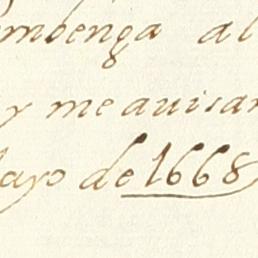 mbenga al
y me auisar
ayo de 1668